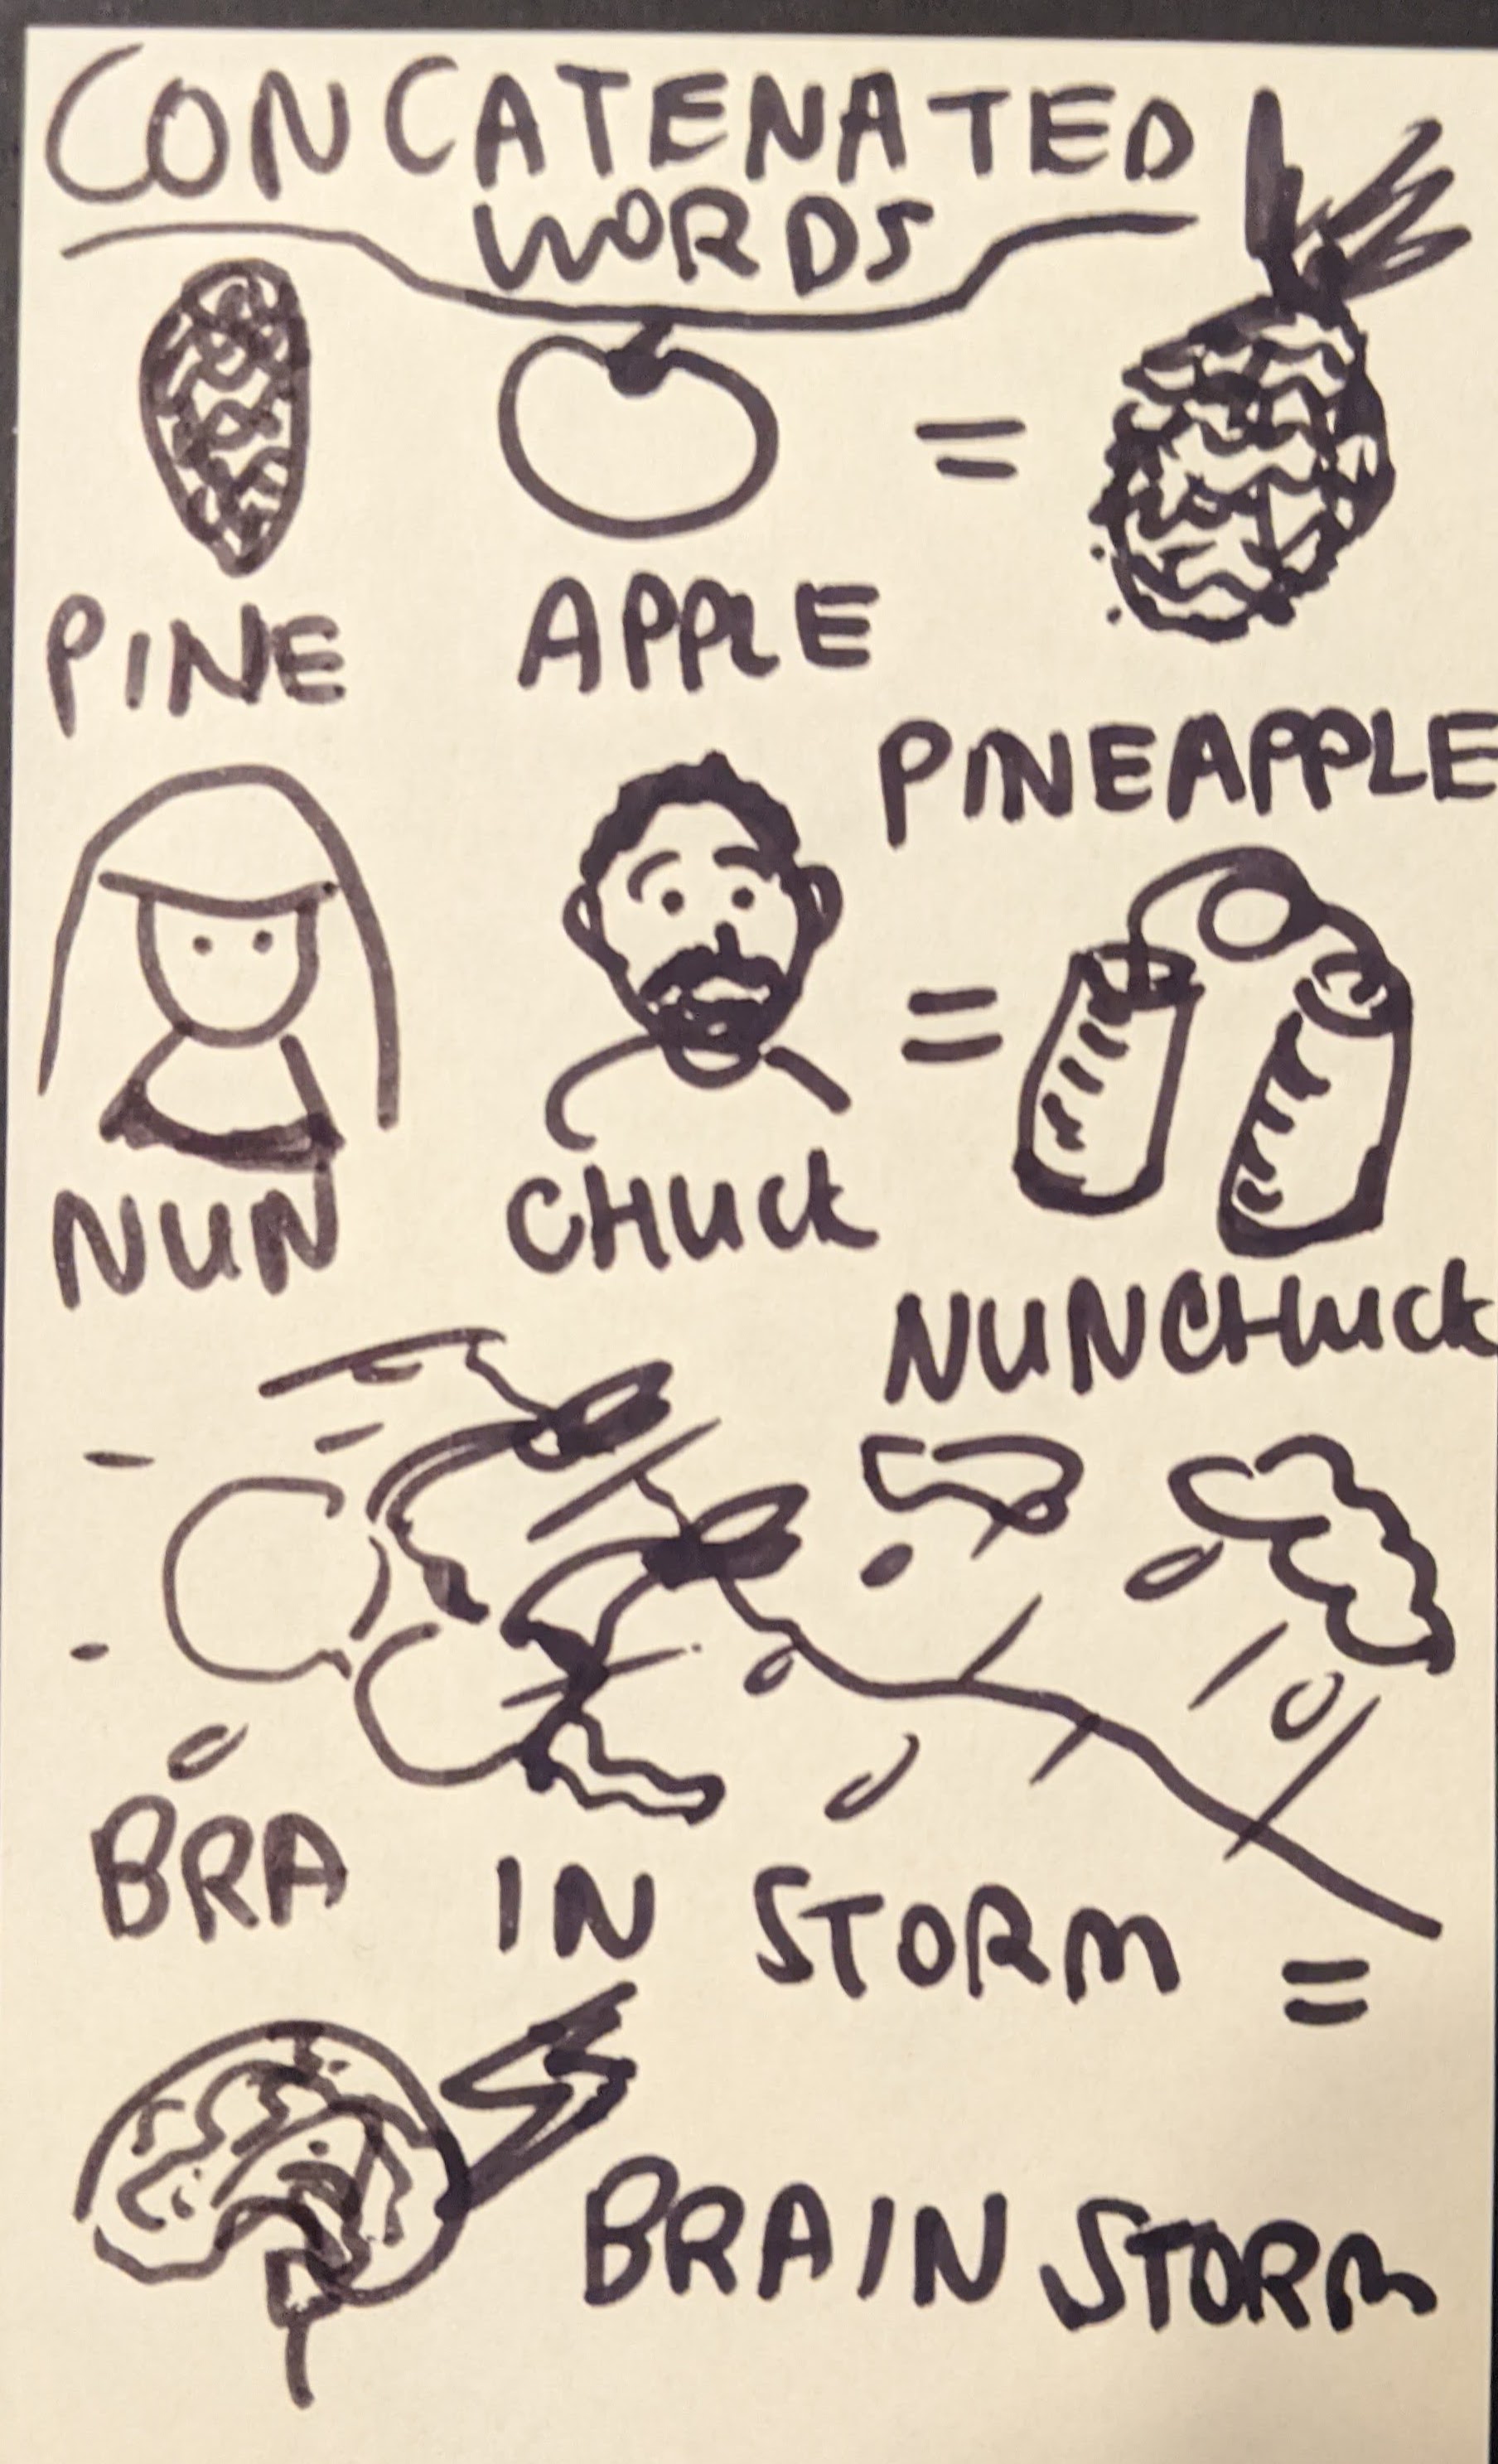 CONCATENATED
WORDS
PINE APPLE =
PINEAPPLE
NUN CHUCK =
NUNCHUCK
BRA IN STORM =
BRAIN STORM